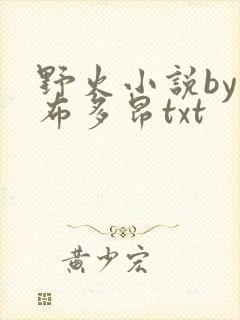 野火小説by
布多昂txt
黄少宏